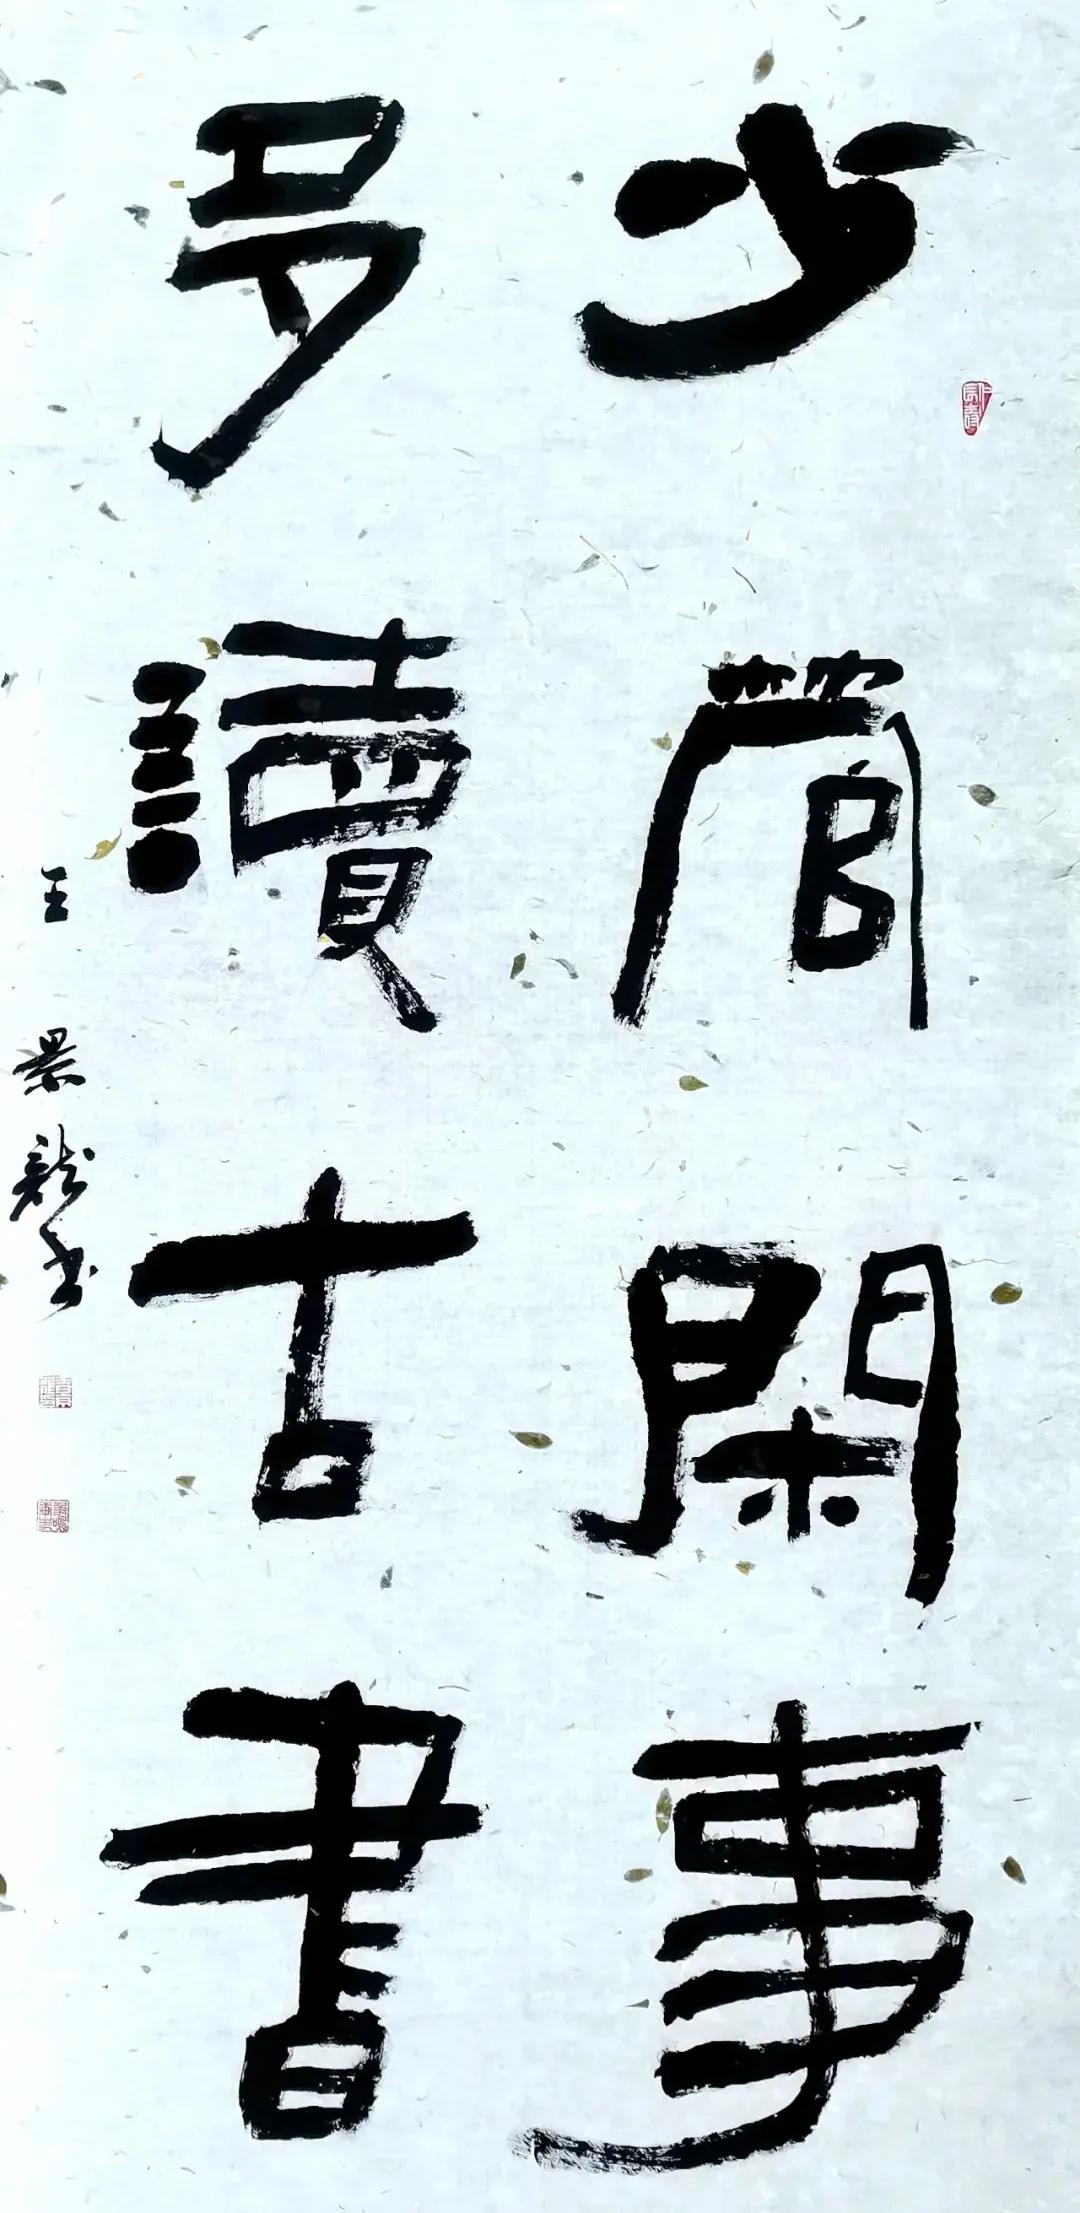 少管閑事
多讀古書
王景龍書